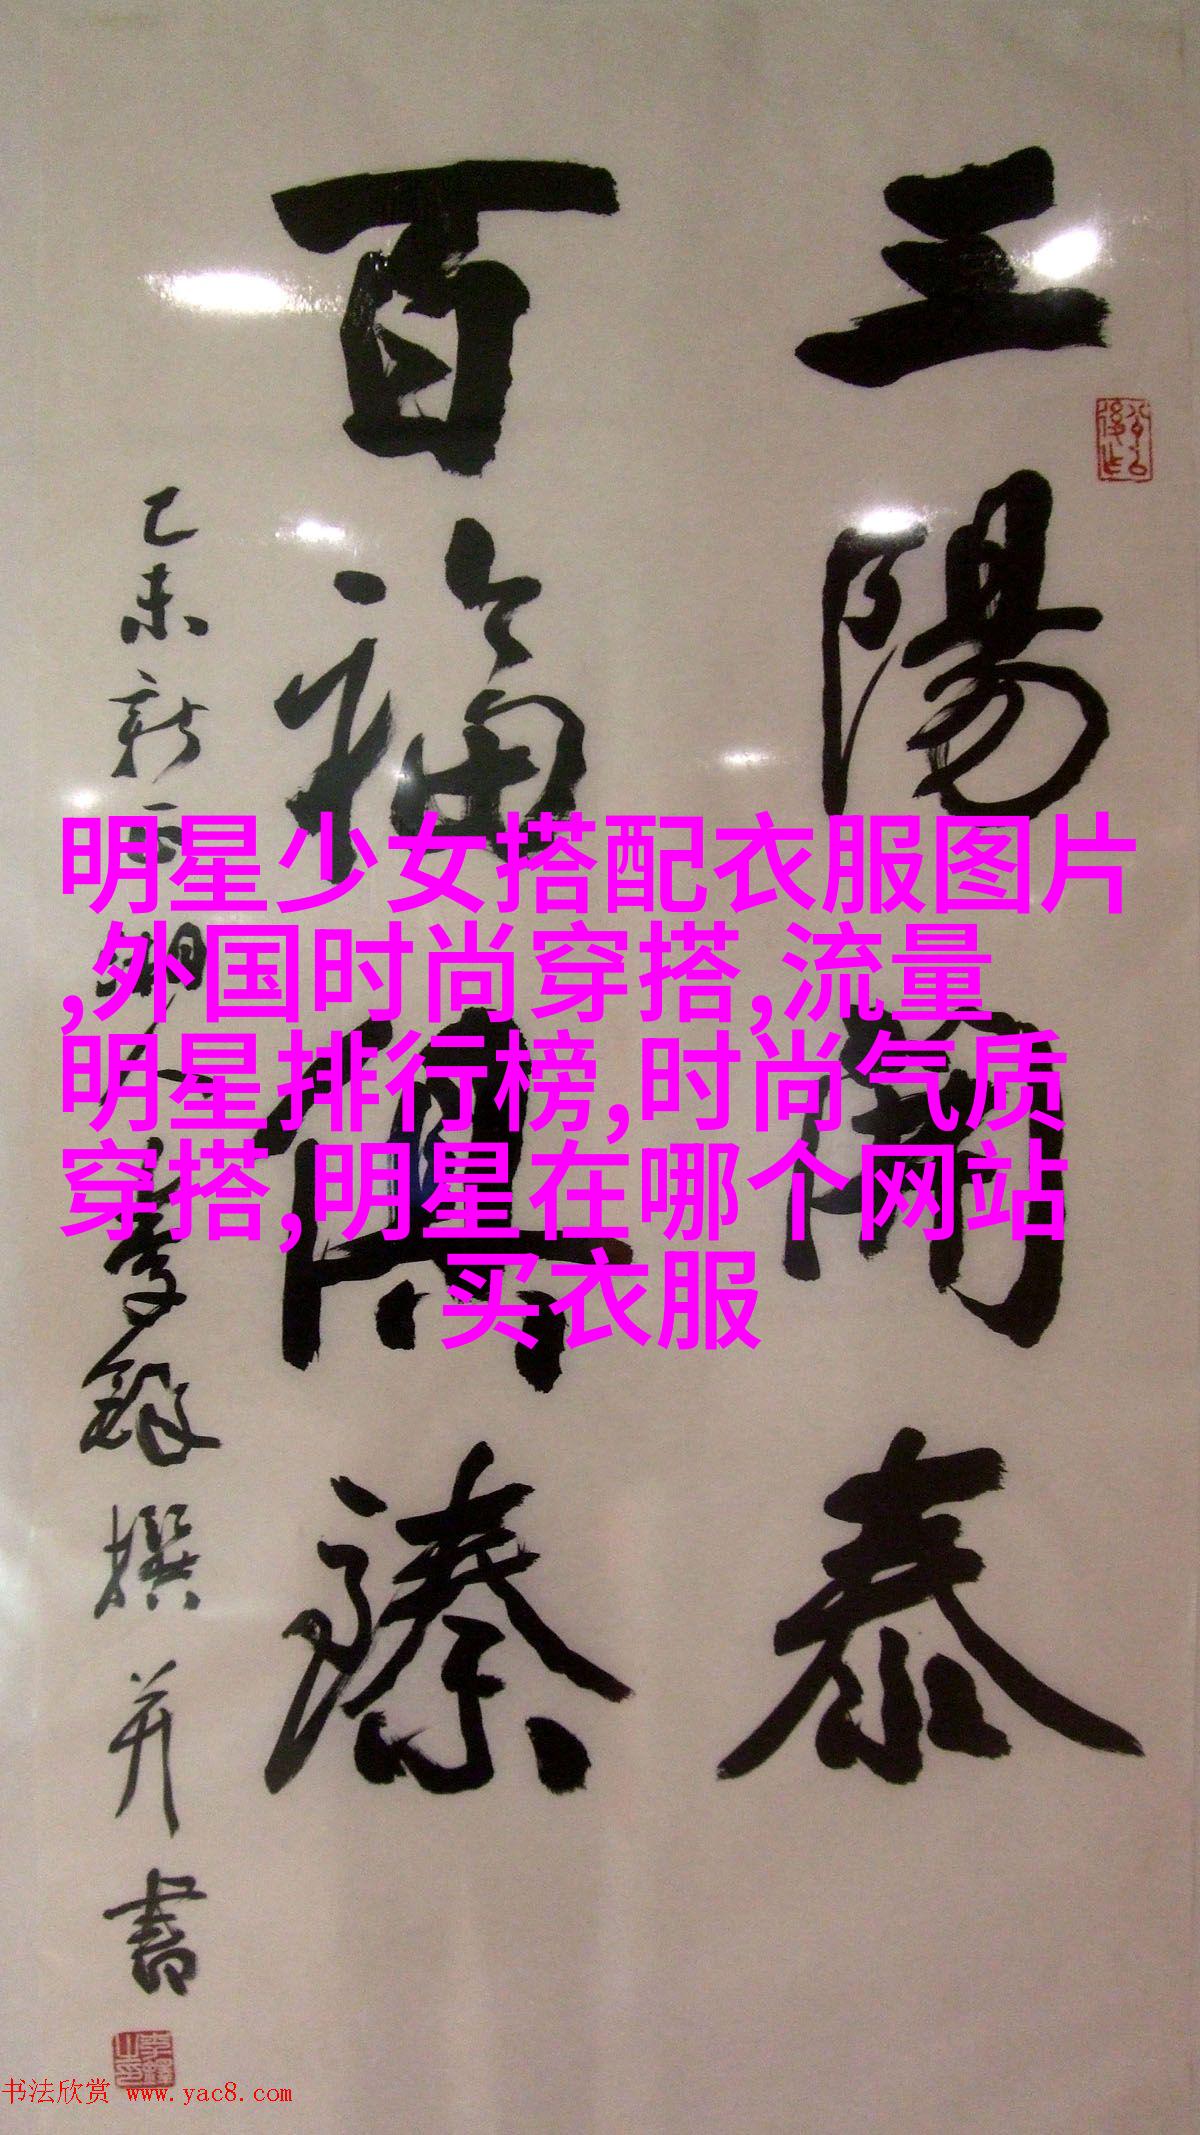 三陽開泰
百福俱臻
乙未新正人李鐸撰并書
明星少女搭配衣服图片
,外国时尚穿搭,流量
明星排行榜,时尚气质
穿搭,明星在哪个网站
买衣服
书法欣赏 www.yac8.com